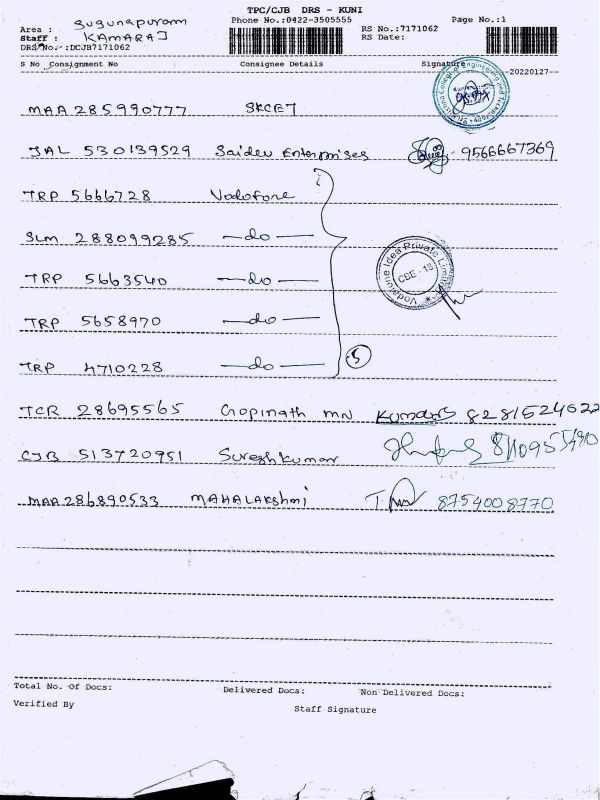 TPC/CJB DRS - KUNI
Area : Sugunapuram Phone No.:0422-3505555 RS No.:7171062 Page No.:1
Staff : KAMARAJ RS Date:
DRS No.:DCJB7171062
S No Consignment No Consignee Details Signature
--20220127--
MAA 285990777 SKCET
JAL 530139529 Saidev Enterprises 9566667369
TRP 5666728 Vodofone
SLM 288099285 —do—
TRP 5663540 —do—
Vodafone Idea Private Limited
CBE - 18
TRP 5658970 —do—
TRP 4710228 —do— 5
TCR 28695565 Gopinath MN
CJB 513720951 Sureshkumar
MAA 286890533 MAHALAKshmi 8754008770
Total No. Of Docs: Delivered Docs: Non Delivered Docs:
Verified By Staff Signature